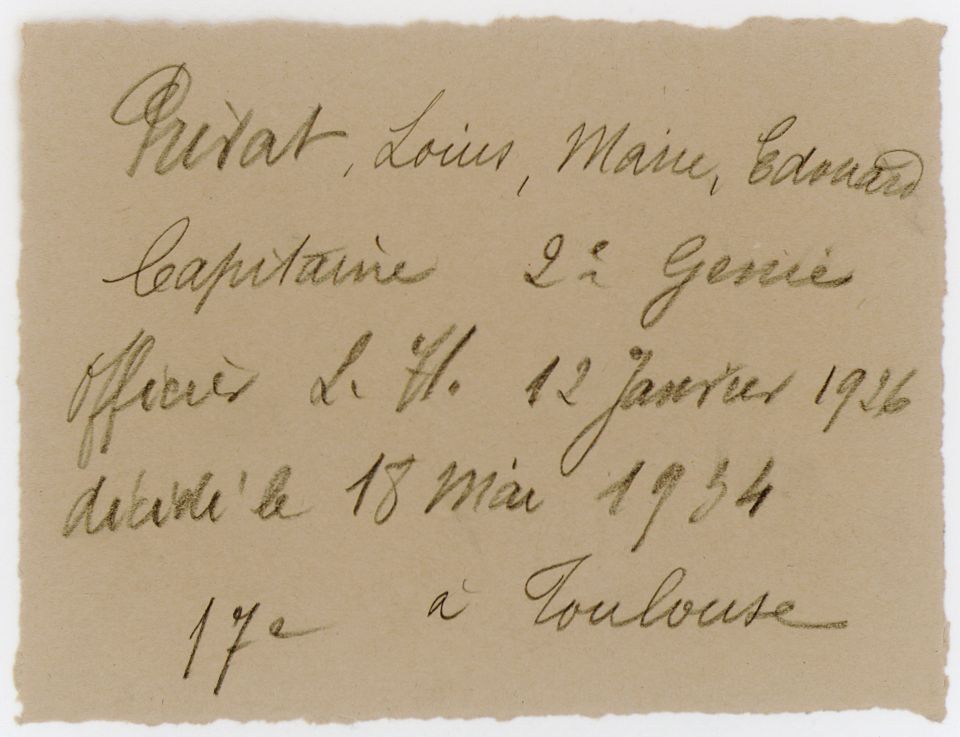 Privat, Louis, Marie, Edouard
Capitaine 2e Genie
Officier L. H. 12 Janvier 1926
décédé le 18 Mai 1934
17e à Toulouse